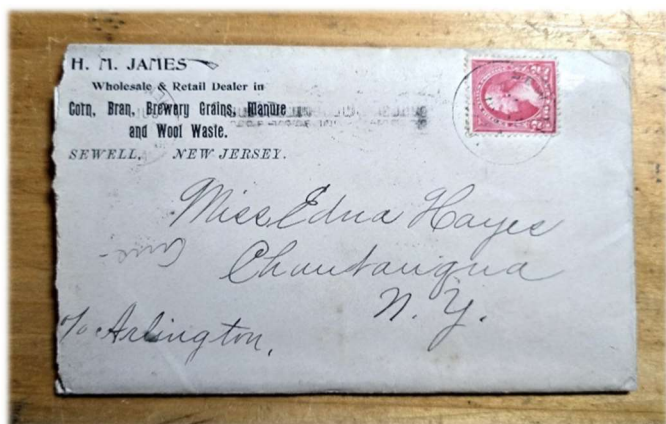 H. M. JAMES
Wholesale & Retail Dealer in
Corn, Bran, Brewery Grains, Manure
and Wool Waste.
SEWELL, NEW JERSEY.
Miss Edna Hayes
Chautauqua
N. Y.
℅ Arlington.